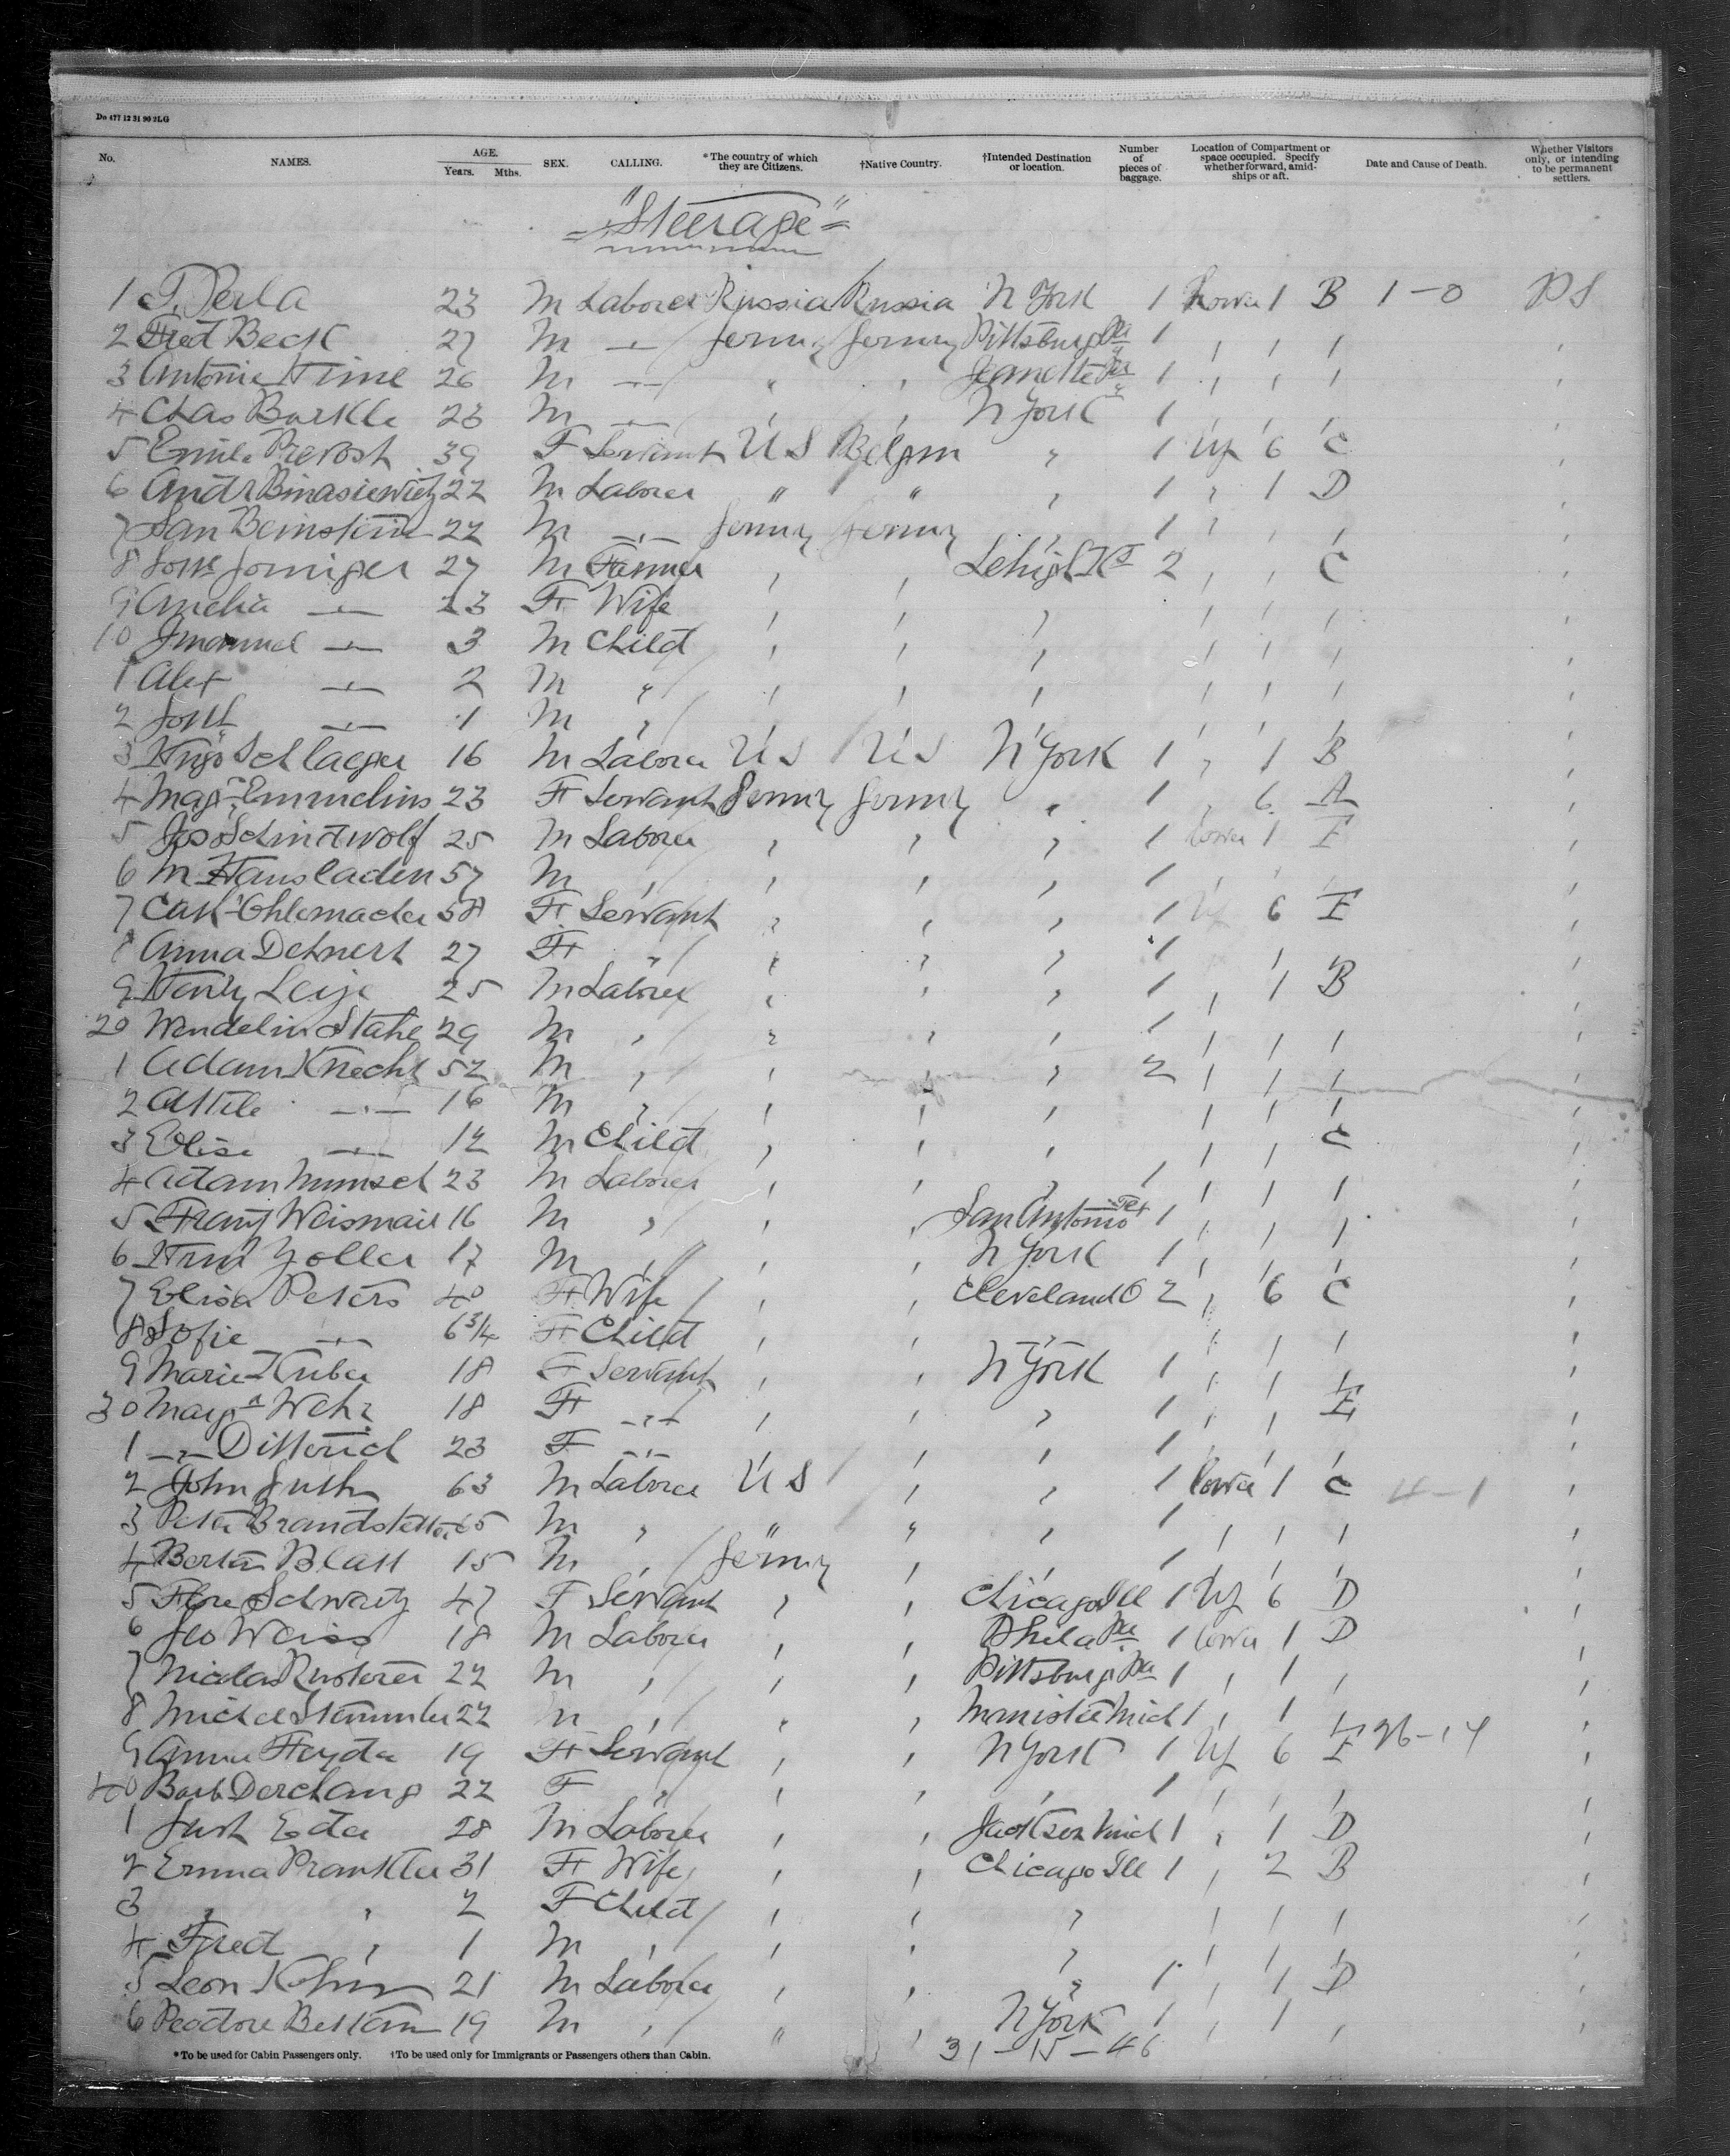 Do 477 12 31 90 2LG
No. NAMES. AGE. Years. Mths. SEX. CALLING. *The country of which they are Citizens. †Native Country. †Intended Destination or location. Number of pieces of baggage. Location of Compartment or space occupied. Specify whether forward, amidships or aft. Date and Cause of Death. Whether Visitors only, or intending to be permanent settlers.
"Steerage"
1 Perla 23 M Laborer Russia Russia N York 1 Lower 1 B 1-0 PS
2 Fred Beck 27 M -"- Germy Germy Pittsburg Pa 1 , , ,
3 Antonie 26 M -"- " , Jeanette Pa 1 , , ,
4 Chas Burkle 23 M -"- , , N York 1 , , ,
5 Emile Prevost 39 F Servant U S Belgm " 1 Up 6 C
6 Andr Binasiewitz 22 M Laborer " " , 1 , 1 D
7 San Bernstein 22 M -"- Germy Germy , 1 , , ,
8 27 M Farmer , , Lehigh Ks 2 , , C
9 Amelia -"- 23 F Wife , , , , , ,
10 Imanuel -"- 3 M Child , , , , , ,
1 Alex -"- 2 M " , , , , , ,
2 -"- 1 M , , , , , , ,
3 Hugo Schlager 16 M Laborer U S U S N York 1 , 1 B
4 Emmelius 23 F Servant Germy Germy " 1 , 6 A
5 Jos Schindwolf 25 M Laborer , , , 1 Lower 1 E
6 M Hausladen 57 M , , , , 1 , , ,
7 Ohlemacher 58 F Servant , , , 1 Up 6 E
8 Anna Dehnert 27 F " , , , 1 , , ,
9 Henry 25 M Laborer , , , 1 , 1 B
20 Wendelin Stahl 29 M , , , , 1 , , ,
1 Adam Knecht 52 M , , , , 2 , , ,
2 -"- 16 M , , , , , , ,
3 Elise -"- 12 M Child , , , , , C
4 Adam 23 M Laborer , , , 1 , , ,
5 Franz Weismair 16 M , , , San Antonio Tex 1 , , ,
6 Zoller 17 M , , , N York 1 , , ,
7 Elisa Peters 40 F Wife , , Cleveland O 2 , 6 C
8 Sofie -"- 6 3/4 F Child , , , , , ,
9 Marie Huber 18 F Servant , , N York 1 , , ,
30 Marga 18 F -"- , , , 1 , , E
1 -"- Dittrich 23 F -"- , , , 1 , , ,
2 John 63 M Laborer U S , , 1 Lower 1 C 4-1
3 Peter Brandstetter 65 M , " " , 1 , , ,
4 Blatt 15 M , Germy , , 1 , , ,
5 Schwartz 47 F Servant , , Chicago Ill 1 Up 6 D
6 Geo Weiss 18 M Laborer , , Phila Pa 1 Lower 1 D
7 Nicolas 22 M , , , Pittsburg Pa 1 , 1 ,
8 Michel Stemmler 22 M , , , Manistee Mich 1 , 1 ,
9 Anna Heyda 19 F Servant , , N York 1 Up 6 E 26-14
40 Barb 22 F , , , , 1 , , ,
1 Eder 28 M Laborer , , Jackson Mich 1 , 1 D
2 Emma Prankler 31 F Wife , , Chicago Ill 1 , 2 B
3 , , 2 F Child , , , , , ,
4 Fred , 1 M , , , , , , ,
5 Leon 21 M Laborer , , " 1 , 1 D
6 19 M , " , N York 1 , 1 ,
31-15-46
*To be used for Cabin Passengers only. †To be used only for Immigrants or Passengers others than Cabin.